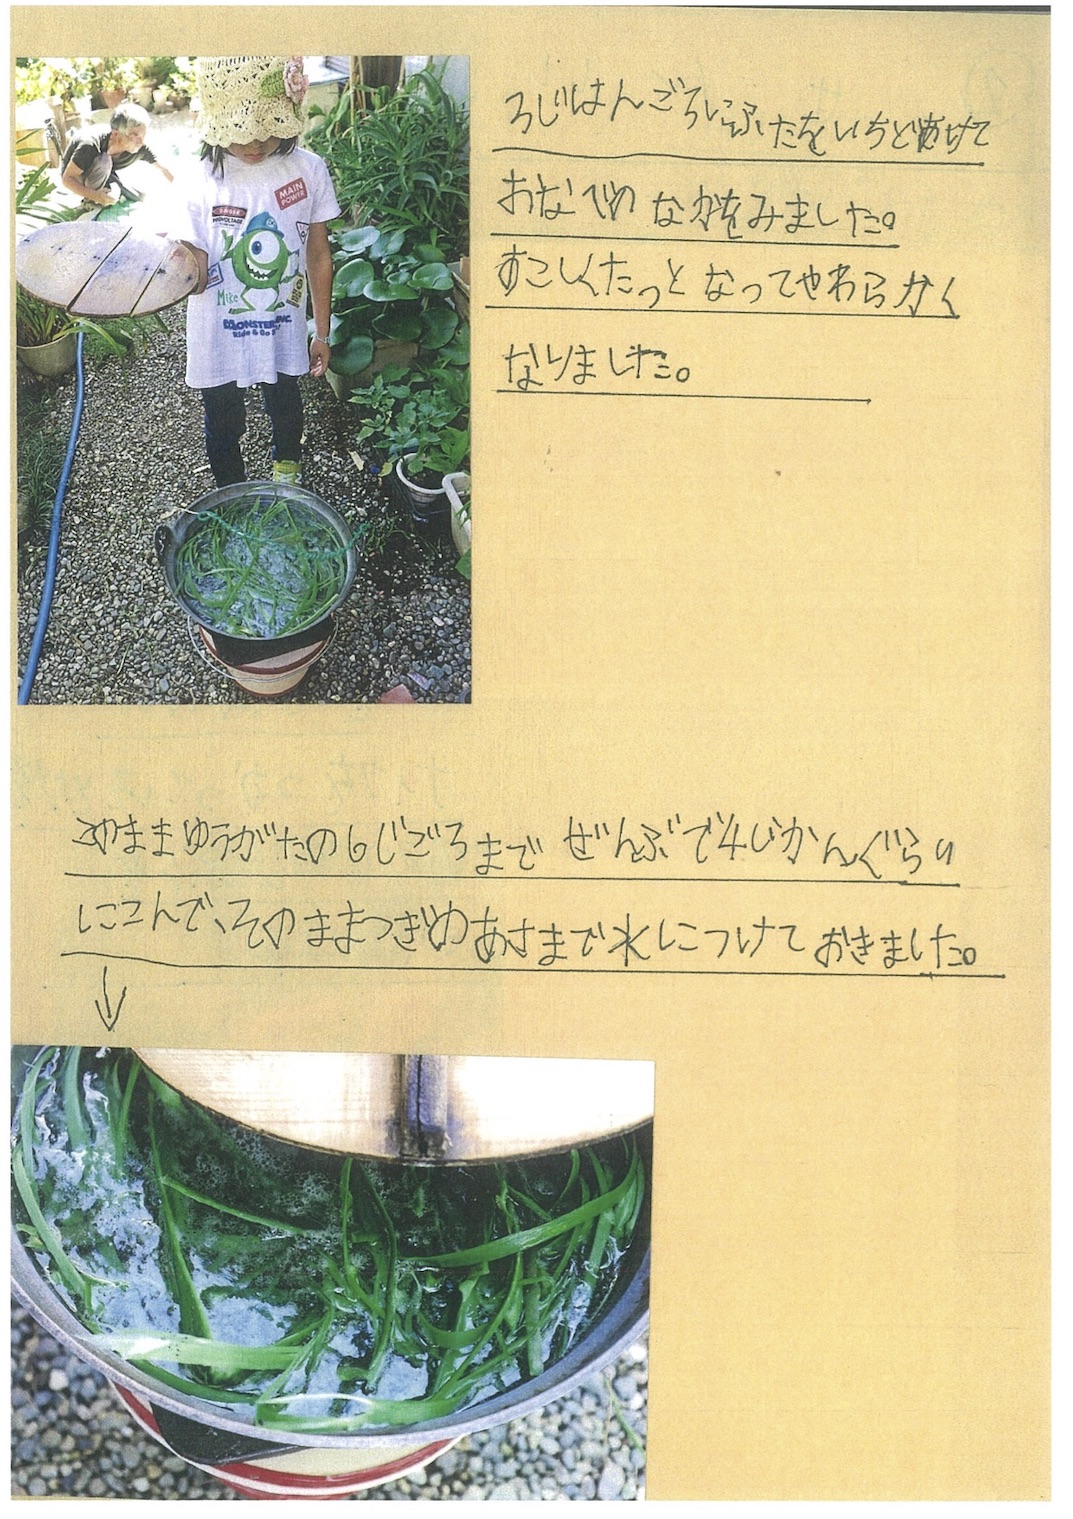 3じはんごろにふたをいちどあけて
おなべの なかをみました。
すこしくたっと なってやわらかく
なりました。
MAIN POWER
DANGER
Mike
MONSTERS, INC.
そのまま ゆうがたの6じごろまで ぜんぶで4じかんぐらい
にこんで、そのままつぎのあさまで水につけて おきました。
↓